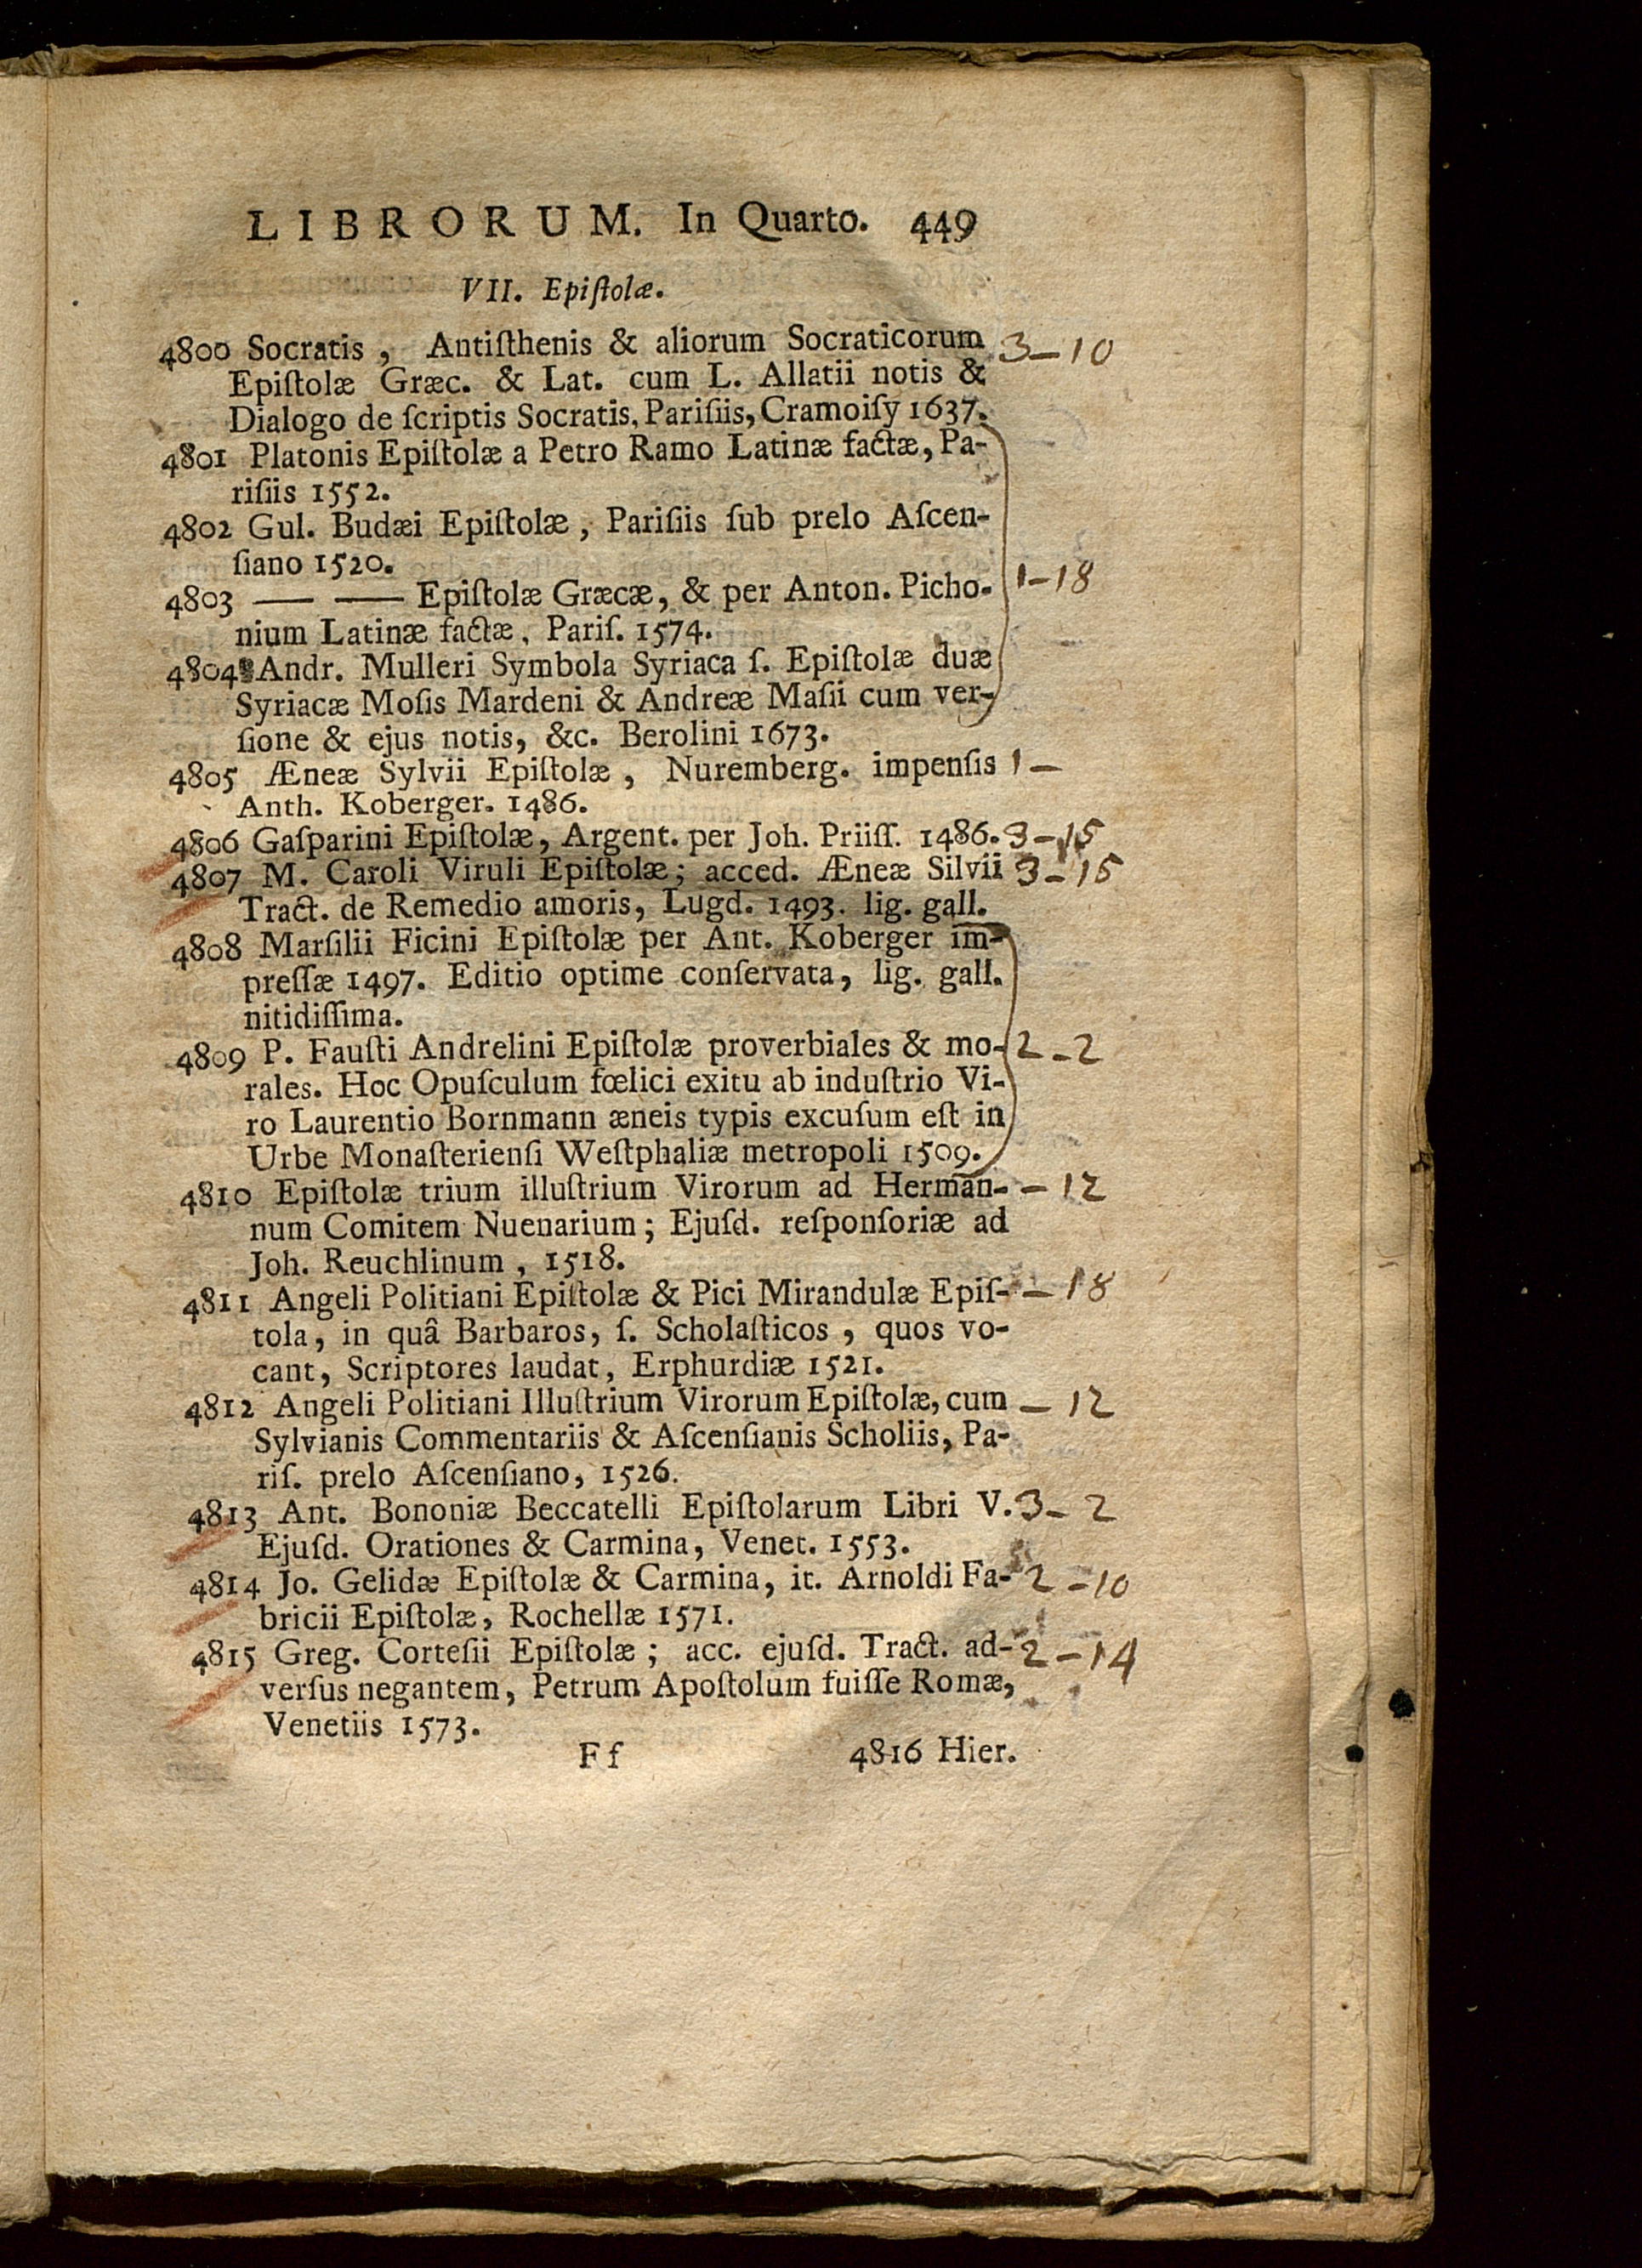 LIBRORUM. In Quarto. 449
VII. Epiſtolæ.
4800 Socratis , Antiſthenis & aliorum Socraticorum 3–10
Epiſtolæ Græc. & Lat. cum L. Allatii notis &
Dialogo de ſcriptis Socratis, Pariſiis, Cramoiſy 1637.
4801 Platonis Epiſtolæ a Petro Ramo Latinæ factæ, Pa-
riſiis 1552.
4802 Gul. Budæi Epiſtolæ, Pariſiis ſub prelo Aſcen-
ſiano 1520.
4803 — — Epiſtolæ Græcæ, & per Anton. Picho- 1–18
nium Latinæ factæ, Pariſ. 1574.
4804 Andr. Mulleri Symbola Syriaca ſ. Epiſtolæ duæ
Syriacæ Moſis Mardeni & Andreæ Maſii cum ver-
ſione & ejus notis, &c. Berolini 1673.
4805 Æneæ Sylvii Epiſtolæ , Nuremberg. impenſis 1–
Anth. Koberger. 1486.
4806 Gaſparini Epiſtolæ, Argent. per Joh. Priiſſ. 1486. 3–15
4807 M. Caroli Viruli Epiſtolæ; acced. Æneæ Silvii 3–15
Tract. de Remedio amoris, Lugd. 1493. lig. gall.
4808 Marſilii Ficini Epiſtolæ per Ant. Koberger im-
preſſæ 1497. Editio optime conſervata, lig. gall.
nitidiſſima.
4809 P. Fauſti Andrelini Epiſtolæ proverbiales & mo- 2–2
rales. Hoc Opuſculum fœlici exitu ab induſtrio Vi-
ro Laurentio Bornmann æneis typis excuſum eſt in
Urbe Monaſterienſi Weſtphaliæ metropoli 1509.
4810 Epiſtolæ trium illuſtrium Virorum ad Herman- –12
num Comitem Nuenarium; Ejuſd. reſponſoriæ ad
Joh. Reuchlinum , 1518.
4811 Angeli Politiani Epiſtolæ & Pici Mirandulæ Epiſ- –18
tola, in quâ Barbaros, ſ. Scholaſticos , quos vo-
cant, Scriptores laudat, Erphurdiæ 1521.
4812 Angeli Politiani Illuſtrium Virorum Epiſtolæ, cum –12
Sylvianis Commentariis & Aſcenſianis Scholiis, Pa-
riſ. prelo Aſcenſiano, 1526.
4813 Ant. Bononiæ Beccatelli Epiſtolarum Libri V. 3–2
Ejuſd. Orationes & Carmina, Venet. 1553.
4814 Jo. Gelidæ Epiſtolæ & Carmina, it. Arnoldi Fa- 2–10
bricii Epiſtolæ, Rochellæ 1571.
4815 Greg. Corteſii Epiſtolæ ; acc. ejuſd. Tract. ad- 2–14
verſus negantem, Petrum Apoſtolum fuiſſe Romæ,
Venetiis 1573.
Ff 4816 Hier.